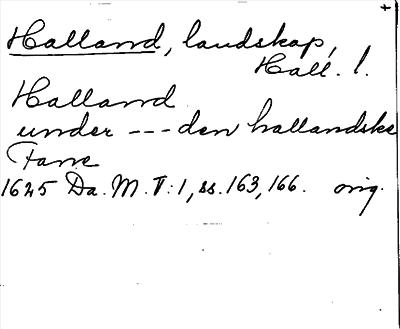 +
Halland, landskap,
Hall. l.
Halland
under --- den hallandske
Fane
1625 Da. M. V:1, ss. 163, 166. orig.